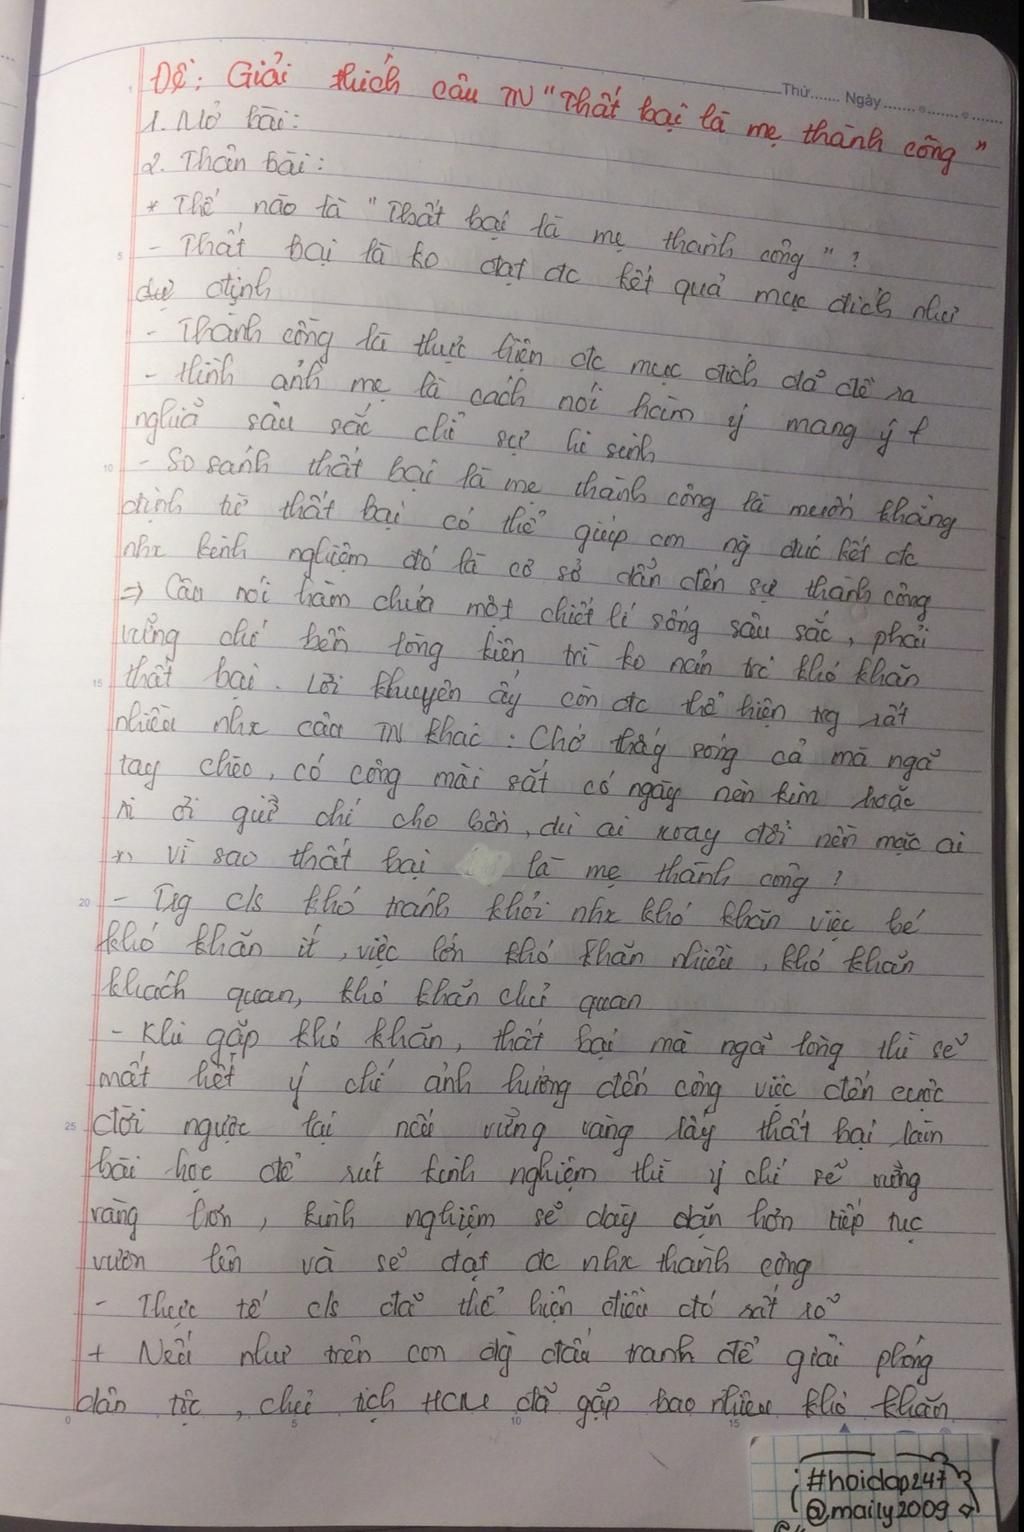 Thứ....... Ngày.......
Đề: Giải thích câu TN "Thất bại là mẹ thành công"
1. Mở bài:
2. Thân bài:
* Thế nào là "Thất bại là mẹ thành công"?
5
- Thất bại là ko đạt đc kết quả mục đích như
dự định
- Thành công là thực hiện đc mục đích đã đề ra
- Hình ảnh mẹ là cách nói hàm ý mang ý
nghĩa sâu sắc chỉ sự hi sinh
10
- So sánh thất bại là mẹ thành công là muốn khẳng
định từ thất bại có thể giúp con ng đúc kết đc
nhx kinh nghiệm đó là cơ sở dẫn đến sự thành công
=> Câu nói hàm chứa một chiết lí sống sâu sắc, phải
vững chí bền lòng kiên trì ko nản trc khó khăn
15
thất bại. Lời khuyên ấy còn đc thể hiện trg rất
nhiều nhx câu TN khác: Chớ thấy sóng cả mà ngã
tay chèo, có công mài sắt có ngày nên kim hoặc
ai ơi giữ chí cho bền, dù ai xoay đổi nền mặc ai
* Vì sao thất bại là mẹ thành công?
20
- Trg c/s khó tránh khỏi nhx khó khăn việc bé
khó khăn ít, việc lớn khó khăn nhiều, khó khăn
khách quan, khó khăn chủ quan
- Khi gặp khó khăn, thất bại mà ngả lòng thì sẽ
mất hết ý chí ảnh hưởng đến công việc đến cuộc
25
đời ngược lại nếu vững vàng lấy thất bại làm
bài học để rút kinh nghiệm thì ý chí sẽ vững
vàng hơn, kinh nghiệm sẽ dày dặn hơn tiếp tục
vươn lên và sẽ đạt đc nhx thành công
- Thực tế c/s đã thể hiện điều đó rất rõ
+ Nếu như trên con đg đấu tranh để giải phóng
dân tộc, chủ tịch HCM đã gặp bao nhiêu khó khăn
0 5 10 15
#hoidap247
@maily2009